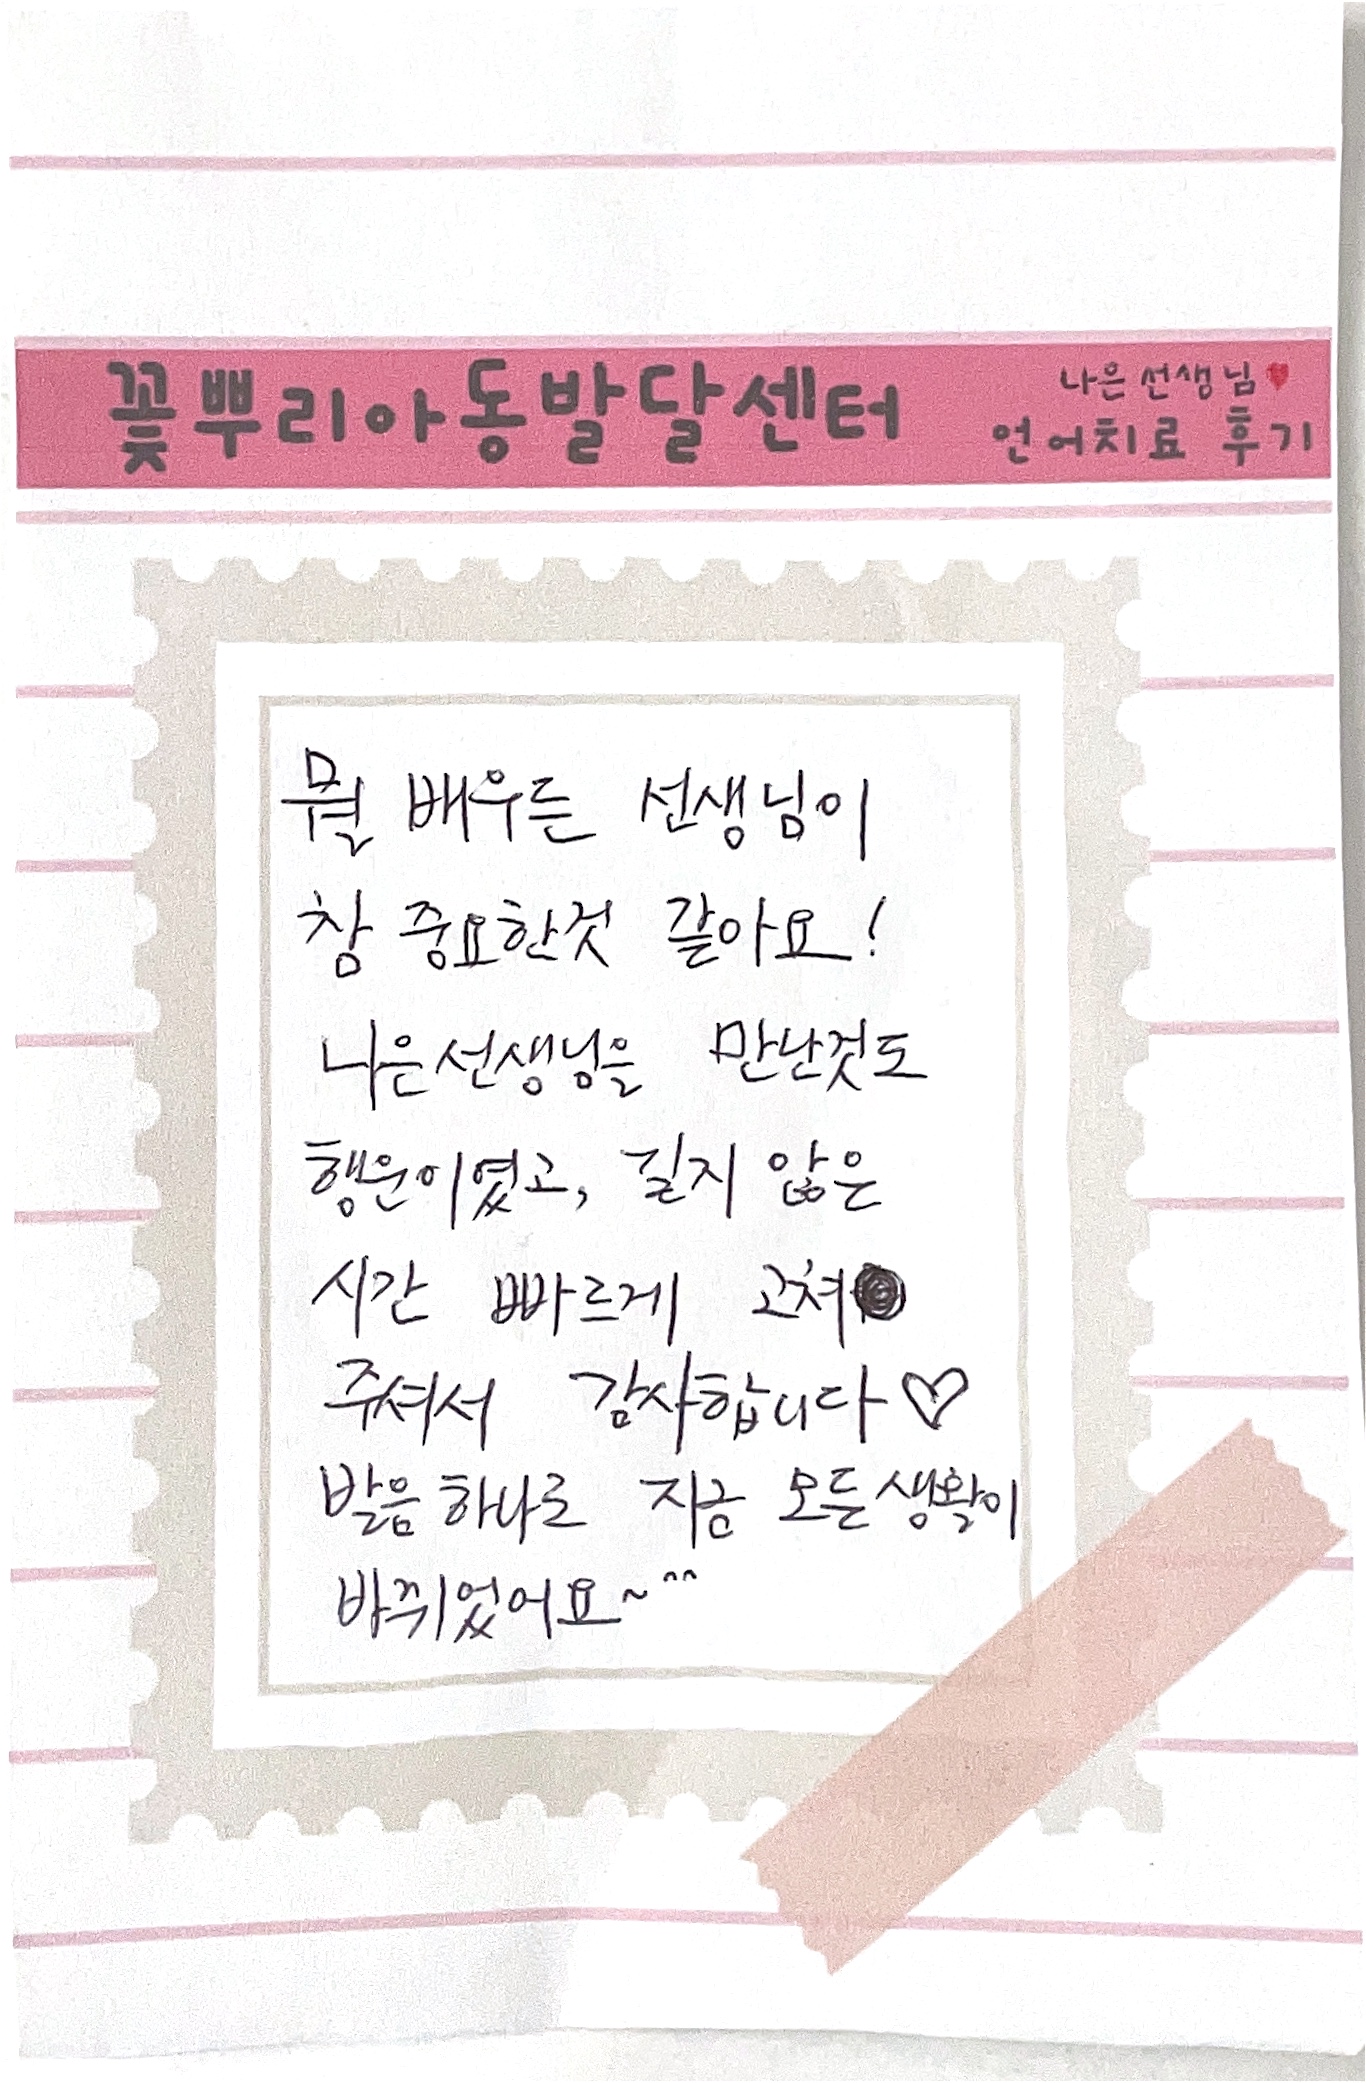 꽃뿌리아동발달센터
나은선생님♥
언어치료 후기
뭘 배우든 선생님이
참 중요한것 같아요!
나은선생님을 만난것도
행운이였고, 길지 않은
시간 빠르게 고쳐
주셔서 감사합니다♡
발음하나로 지금 모든생활이
바뀌었어요~^^